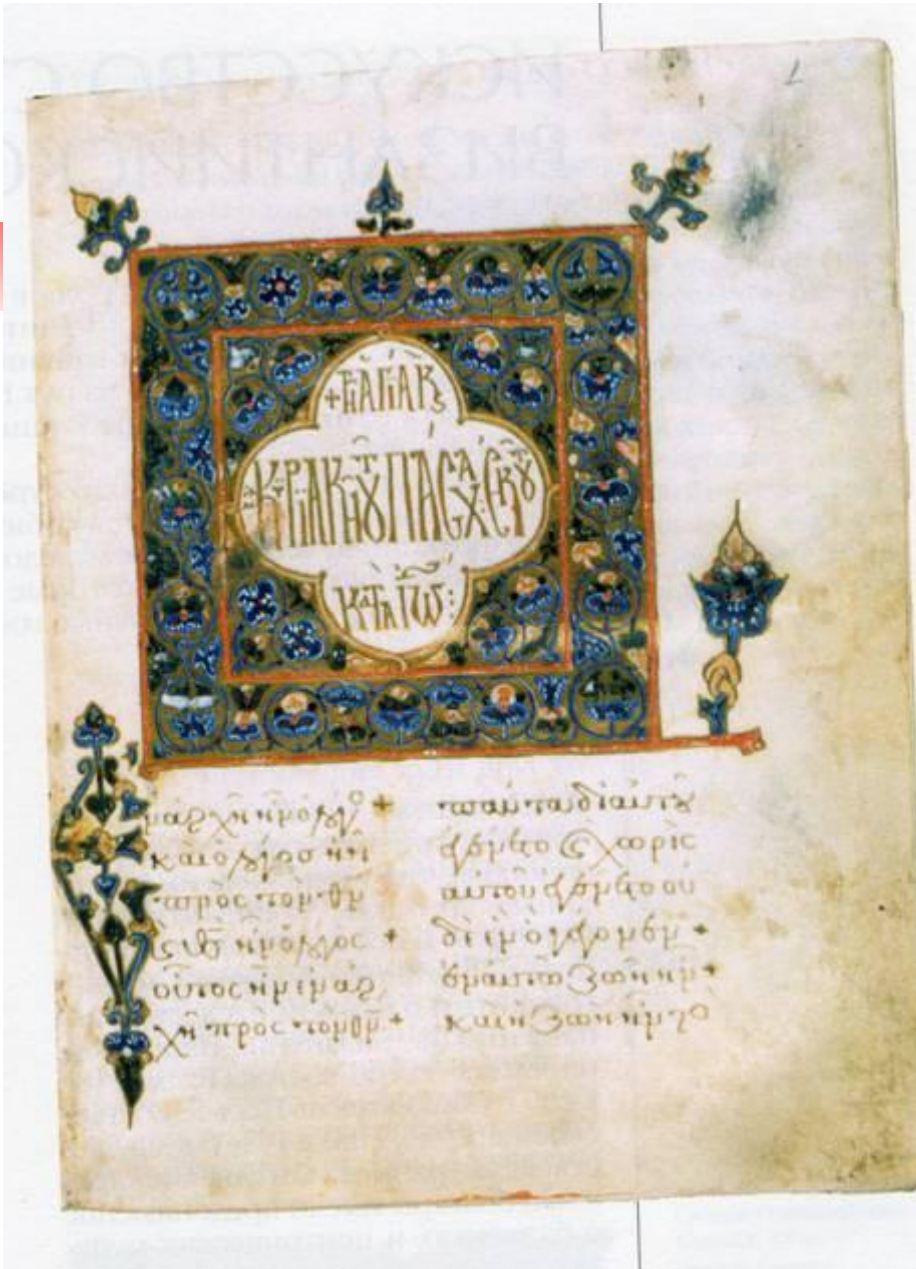 +ΤΗ ΑΓΙΑ Κ
ΚΥΡΙΑΚΗ ΤΟΥ ΠΑΣΧΑ
ΚΑΤΑ ΙΩ:
μαρχῆ ἦν ὁ λόγο +
καὶ ὁ λόγος ἦν
πρὸς τὸν θν
ς θς ἦν ὁ λόγος +
οὗτος ἦν ἐν ἀρ
χῆ πρὸς τὸν θν +
πάντα δι αυτου
ἐγένετο ς χωρὶς
αυτοῦ ἐγένετο οὐ
δὲ ἐν ὃ γέγονεν +
ἐν αυτῶ ζωὴ ἦν +
καὶ ἡ ζωὴ ἦν τὸ
1